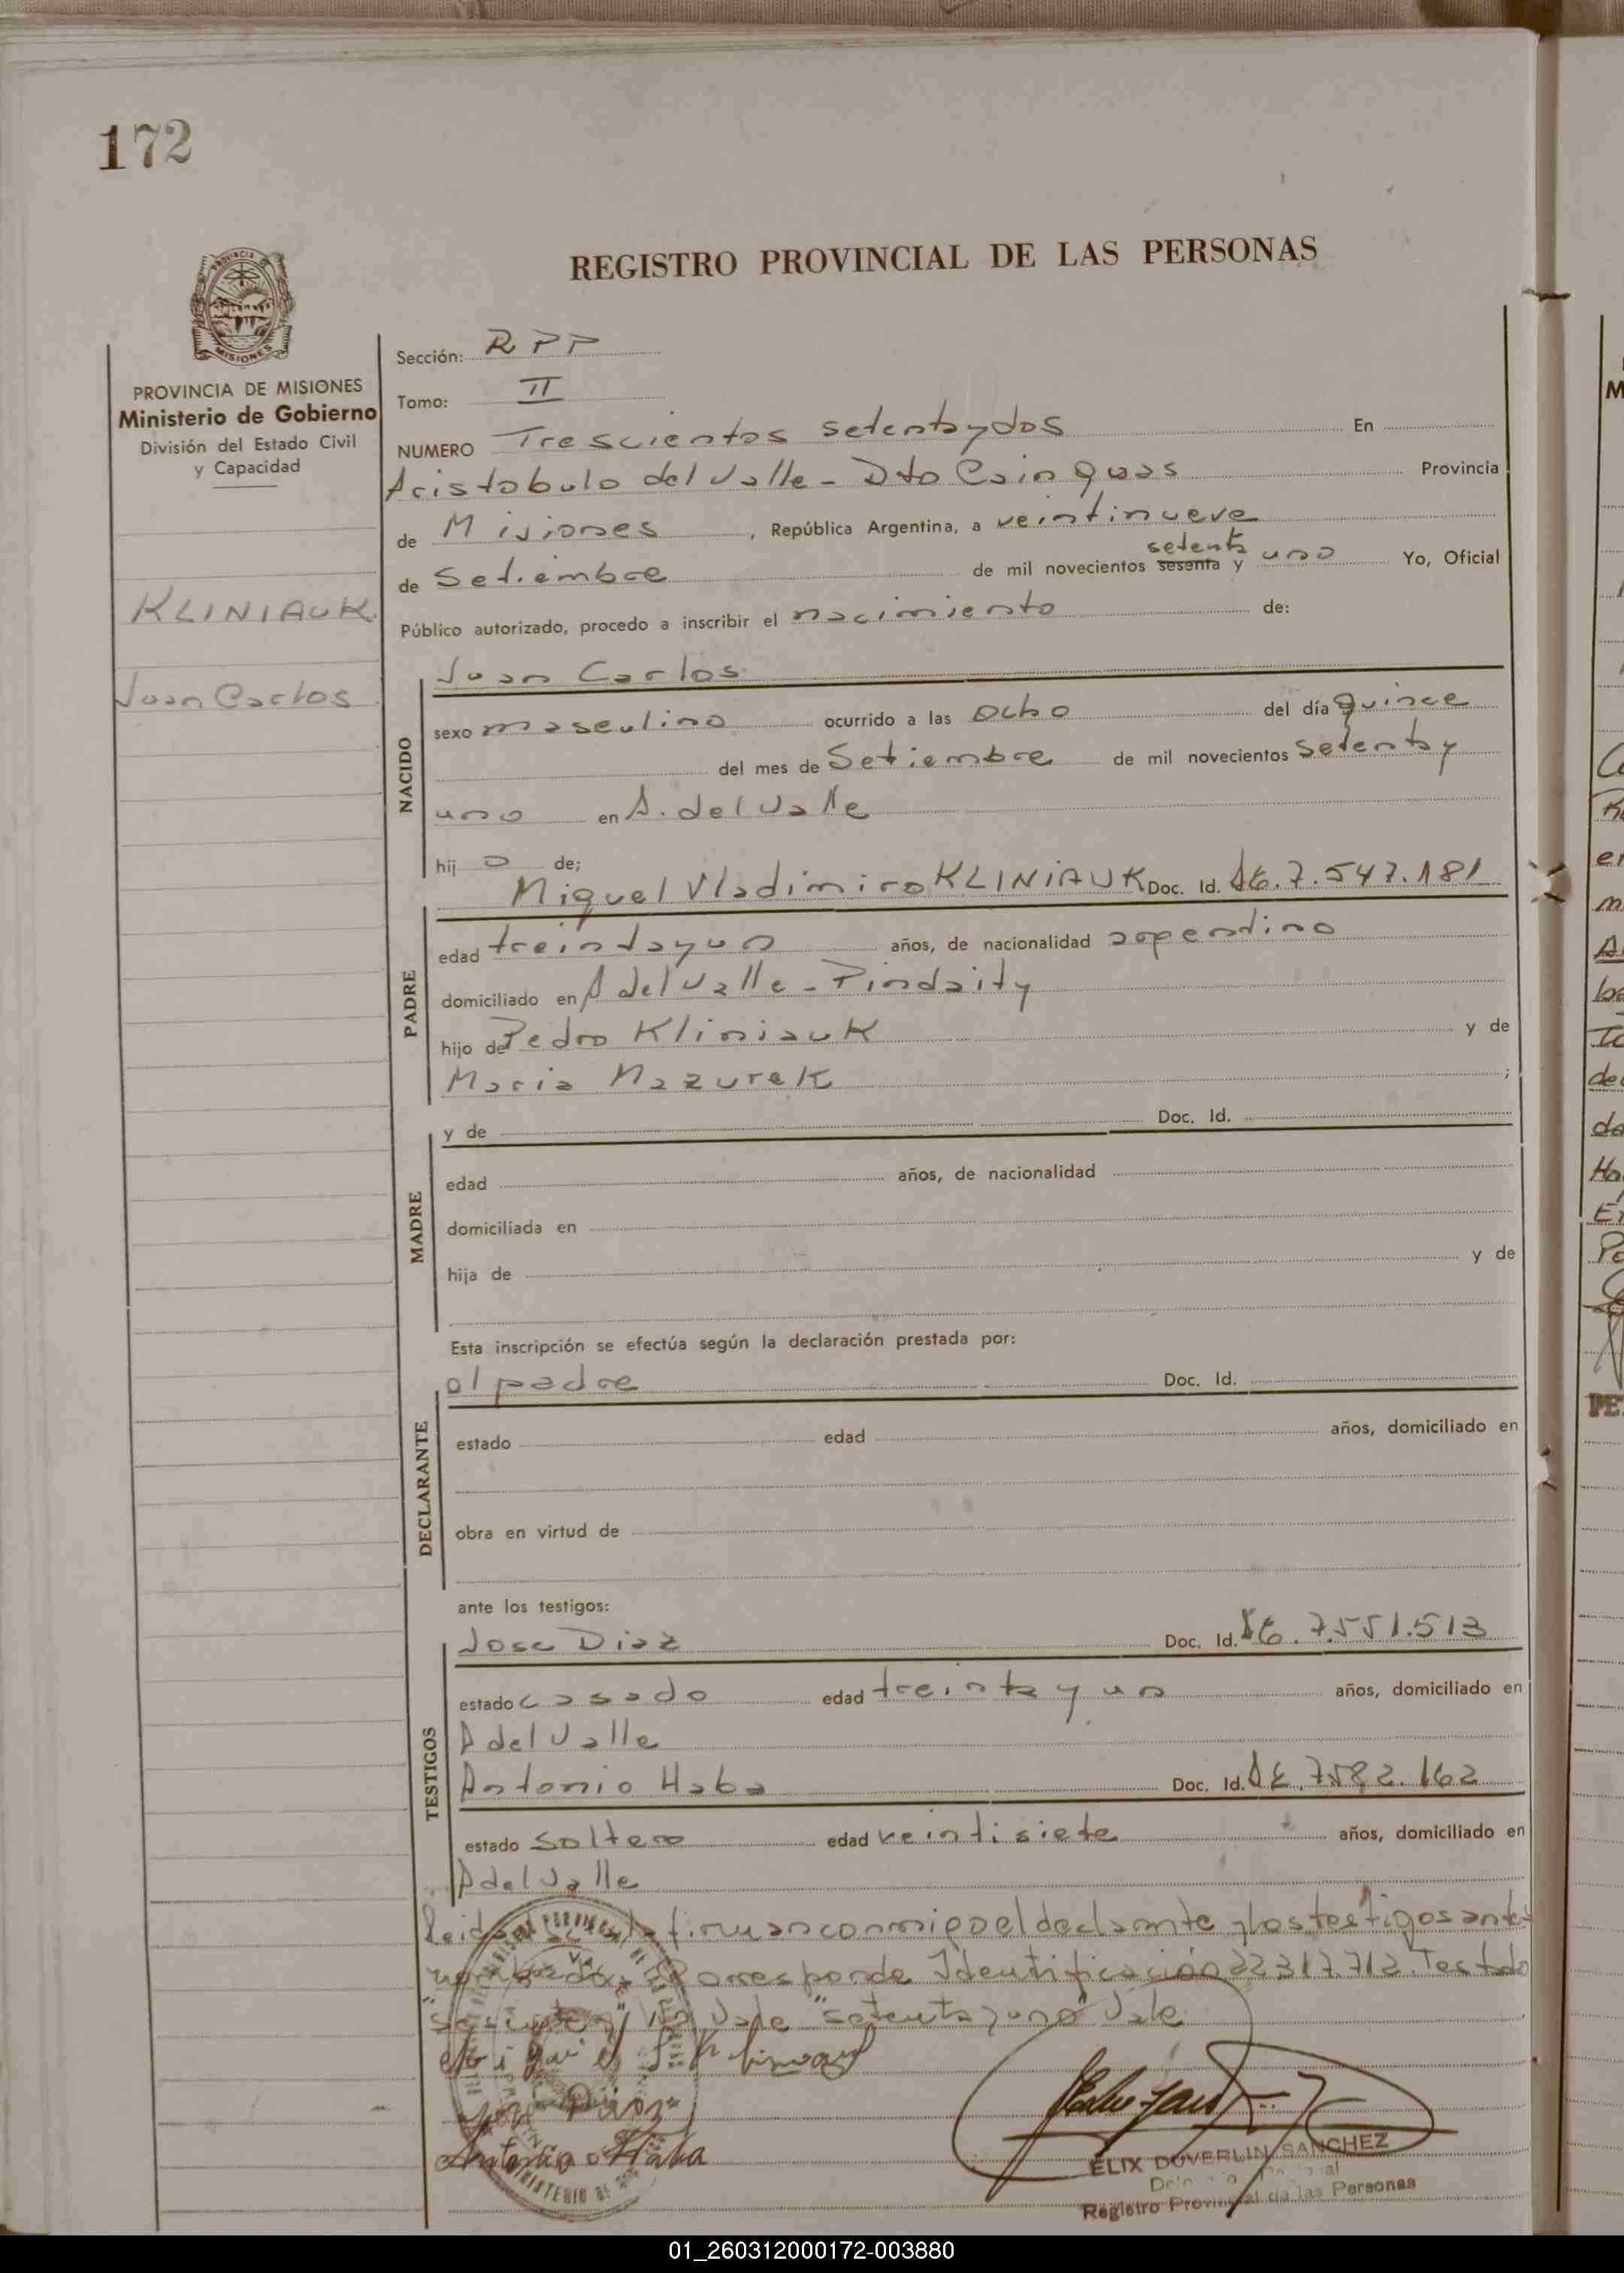 172
REGISTRO PROVINCIAL DE LAS PERSONAS
PROVINCIA DE
MISIONES
PROVINCIA DE MISIONES
Ministerio de Gobierno
División del Estado Civil
y Capacidad
KLINIAUK
Juan Carlos
Sección: RPP
Tomo: II
NUMERO Trescientos setentaydos En
Aristobulo del Valle - Dto Cainguas Provincia
de Misiones, República Argentina, a veintinueve
setenta
de Setiembre de mil novecientos sesenta y uno Yo, Oficial
Público autorizado, procedo a inscribir el nacimiento de:
NACIDO
Juan Carlos
sexo masculino ocurrido a las Ocho del día quince
del mes de Setiembre de mil novecientos Setenta y
uno en A. del Valle
hij o de;
Miguel Vladimiro KLINIAUK Doc. Id. 7.547.181
PADRE
edad treintayun años, de nacionalidad argentino
domiciliado en A del Valle - Pindaity
hijo de Pedro Kliniauk y de
Maria Mazurek ;
MADRE
y de Doc. Id.
edad años, de nacionalidad
domiciliada en
hija de y de
Esta inscripción se efectúa según la declaración prestada por:
DECLARANTE
el padre Doc. Id.
estado edad años, domiciliado en
obra en virtud de
ante los testigos:
TESTIGOS
Jose Diaz Doc. Id. 7.551.513
estado casado edad treinta y un años, domiciliado en
A del Valle
Antonio Haba Doc. Id. 7582.162
estado soltero edad veintisiete años, domiciliado en
A del Valle
firman conmigo el declarante y los testigos antes
Corresponde Identificación 22317.712. Testado
Vale "setenta y uno" Vale
Jose Diaz
Antonio Haba
ELIX DUVERLIN SANCHEZ
Registro Provincial de las Personas
01_260312000172-003880